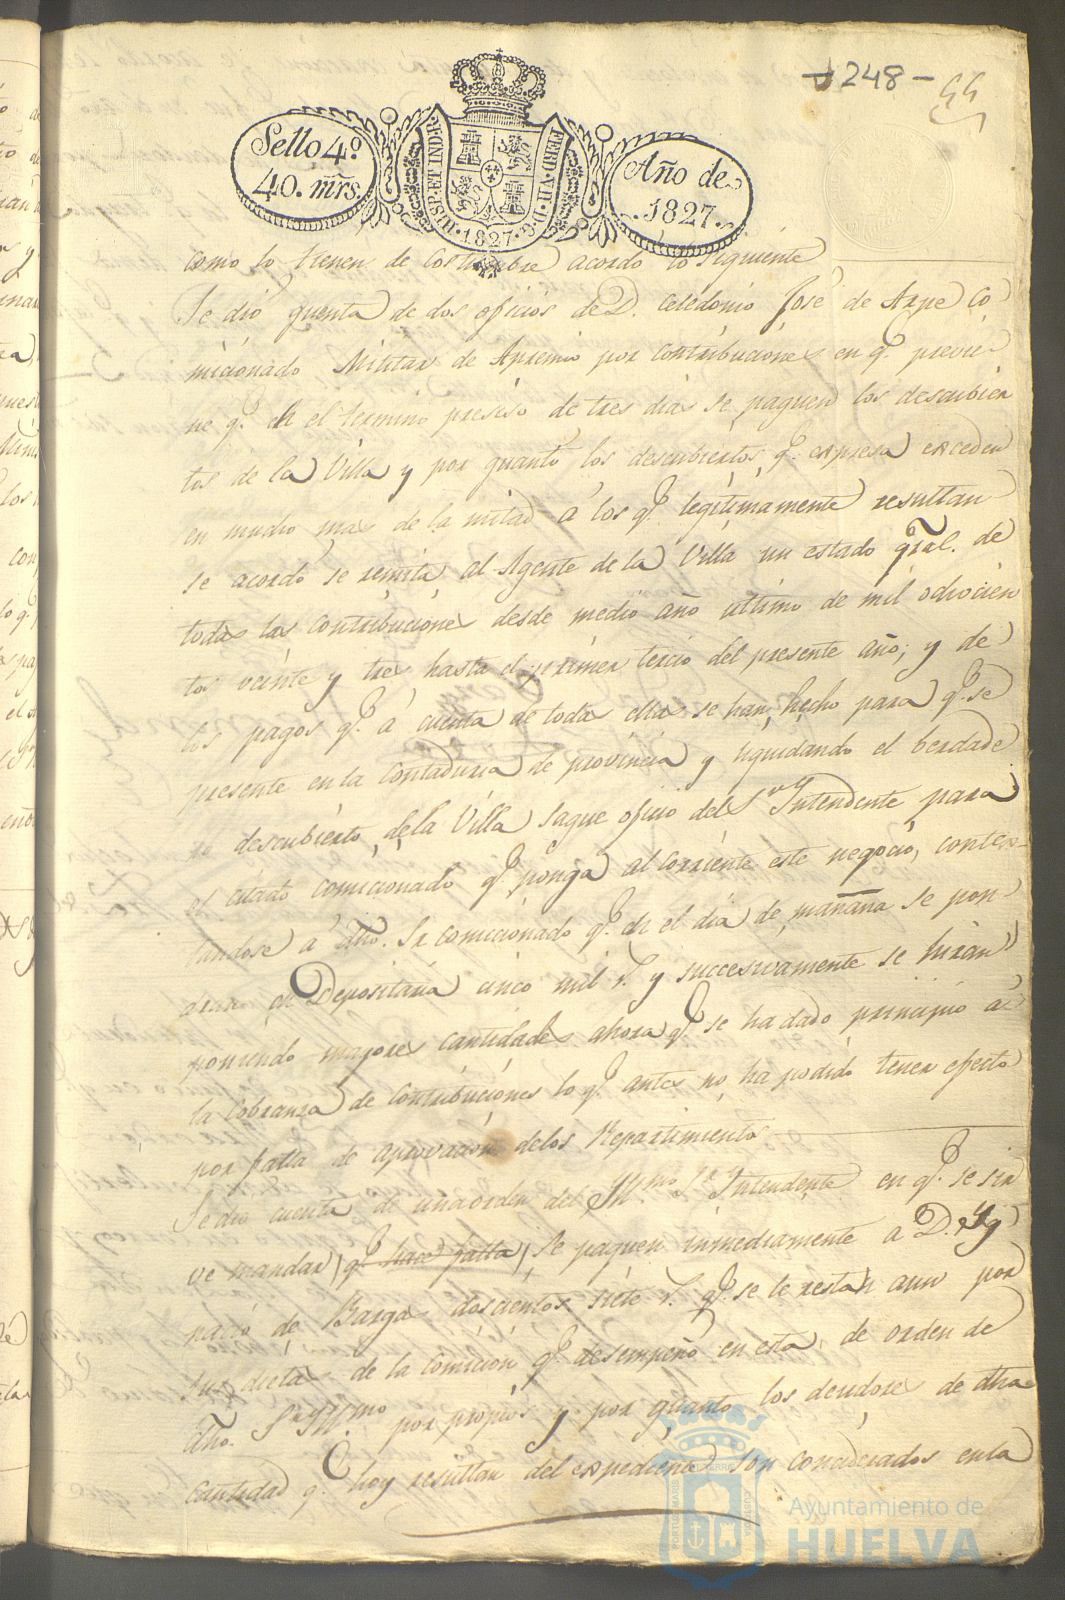 -248-
55
Sello 4º
40. mrs.
HISP. ET IND. R.
FERD. VII. D. G.
1827
Año de
1827.
como lo tienen de costumbre acordo lo siguiente
Se dio quenta de dos oficios de D. Celedonio José de Arpe Co
micionado Militar de Apremio por contribuciones en q.e previe-
ne q.e en el termino preseso de tres dias se paguen los descubier
tos de la Villa y por quanto los descubiertos q.e expresa exceden
en mucho mas de la mitad á los q.e legitimamente resultan
se acordo se remita al Agente de la Villa un estado gral. de
todas las contribuciones desde medio año ultimo de mil ochocien
tos veinte y tres hasta el primer tercio del presente año; y de
los pagos q.e á cuenta de todas ellas se han hecho para q.e se
presente en la Contaduria de provincia y liquidando el berdade
ro descubierto de la Villa saque oficio del S.or Intendente para
el citado comicionado q.e ponga al corriente este negocio, contes-
tandose á dho. Sr comicionado q.e en el dia de mañana se pon-
dran en Depositaria cinco mil r. y succesivamente se hiran
poniendo mayores cantidades ahora q.e se ha dado principio á
la cobranza de contribuciones lo q.e antes no ha podido tener efecto
por falta de aprovacion delos Repartimientos
Se dio cuenta de una orden del Yll.mo S.r Intendente en q.e se sir
ve mandar (q.e hace falta) se paguen inmediamente a D. Yg
nacio de Barga doscientos siete r. q.e se le restan aun por
sus dietas de la comicion q.e desempeñó en esta de orden de
dho. S.r Yll.mo por propios y por quanto los deudores de dha
cantidad q.e hoy resultan del expediente son considerados enla
Ayuntamiento de
HUELVA